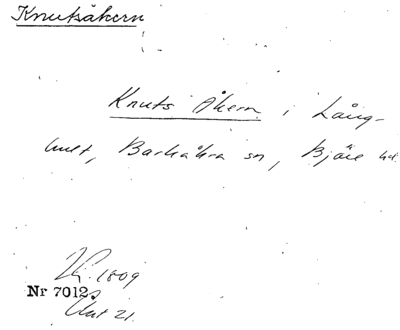 Knutsåkern
Knuts Åkern i Lång-
hult, Barkåkra sn, Bjäre hd.
1809
Nr 7012.
Akt 21.